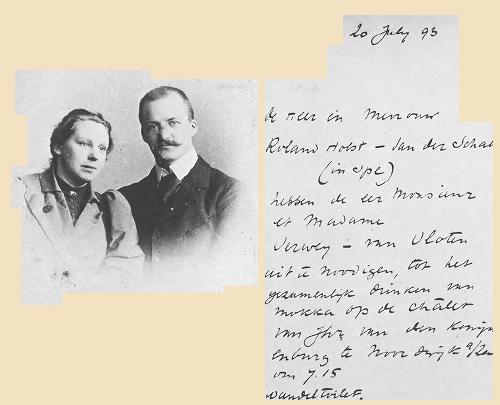 20 July 93
de Heer en Mevrouw
Roland Holst - van der Schal
(in spe)
hebben de eer Monsieur
et Madame
Verwey - van Vloten
uit te noodigen, tot het
gezamenlijk drinken van
mokka op de châlet
van van den Konijn
enburg te Noordwijk a/Zee
om 7.15
wandeltoilet.